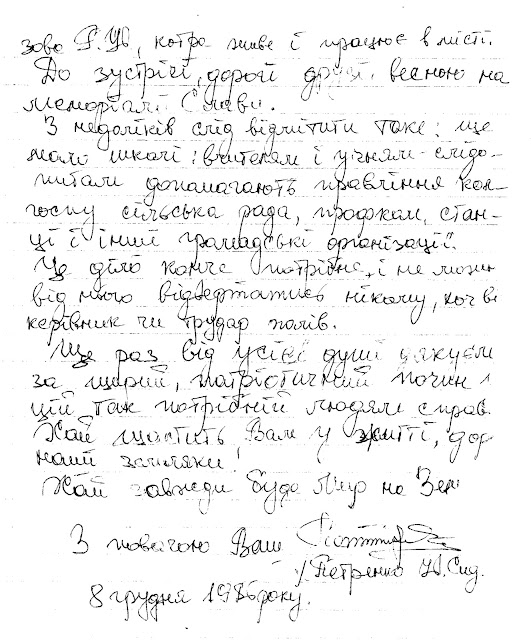 зова Р.Ю, котра живе і працює в місті.
До зустрічі, дорогі друзі весною на
меморіалі Слави.
З недоліків слід відмітити таке: ще
мало школі: вчителям і учням-слідо-
питам допомагають правління кол-
госпу сільська рада, профком, стан-
ції і інші громадські організації".
Це діло конче потрібне, і не можн
від нього відвертатись нікому, хоч ві
керівник чи трудар полів.
Ще раз від усієї душі дякуєм
за щирий, патріотичний почин
цій так потрібній людям справ
Хай щастить Вам у житті, дор
наші земляки!
Хай завжди буде Мир на Зем
З повагою Ваш
Петренко
8 грудня 1986 року.